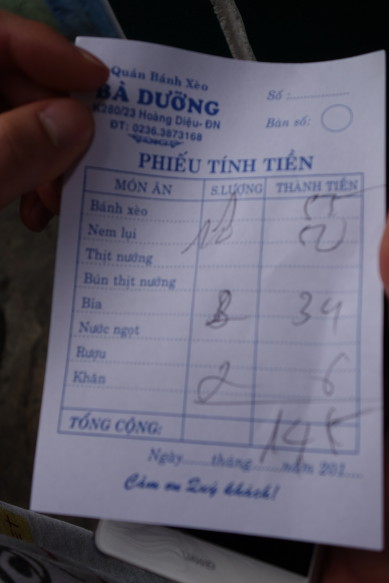 Quán Bánh Xèo
BÀ DƯỠNG
K280/23 Hoàng Diệu- ĐN
ĐT: 0236.3873168
Số :..................
Bàn số:
PHIẾU TÍNH TIỀN
MÓN ĂN S.LƯỢNG THÀNH TIỀN
Bánh xèo
Nem lụi
Thịt nướng
Bún thịt nướng
Bia 34
Nước ngọt
Rượu
Khăn 2 6
TỔNG CỘNG: 145
Ngày......tháng......năm 201....
Cảm ơn Quý khách!